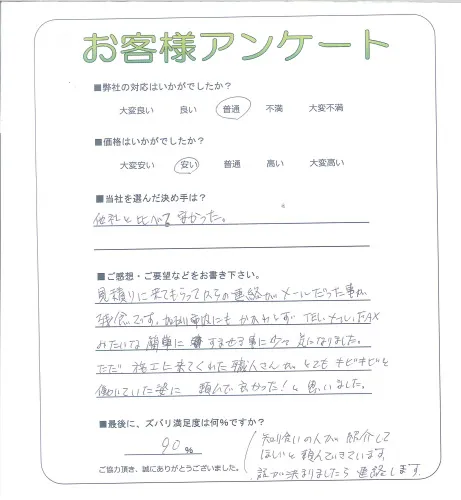 お客様アンケート
■弊社の対応はいかがでしたか?
大変良い 良い 普通 不満 大変不満
■価格はいかがでしたか?
大変安い 安い 普通 高い 大変高い
■当社を選んだ決め手は?
他社と比べて安かった。
■ご感想・ご要望などをお書き下さい。
見積りに来てもらってからの連絡がメールだった事が
残念です。にもかかわらず TEL、メール、FAX
みたいな簡単に すませる事に少々気になりました。
ただ 施工に来てくれた職人さんが とてもキビキビと
働いていた姿に 頼んで良かった!と思いました。
■最後に、ズバリ満足度は何%ですか?
90%
知り合いの人が 紹介して
ほしいと頼んできています
話が決まりましたら連絡します。
ご協力頂き、誠にありがとうございました。